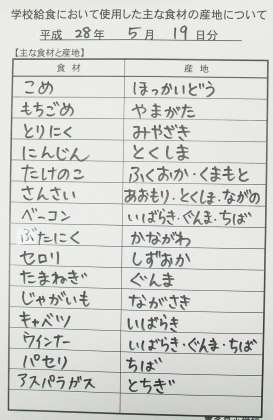 学校給食において使用した主な食材の産地について
平成 28 年 5 月 19 日分
【主な食材と産地】
食材 産地
こめ ほっかいどう
もちごめ やまがた
とりにく みやざき
にんじん とくしま
たけのこ ふくおか・くまもと
さんさい あおもり・とくしま・ながの
ベーコン いばらき・ぐんま・ちば
ぶたにく かながわ
セロリ しずおか
たまねぎ ぐんま
じゃがいも ながさき
キャベツ いばらき
ウインナー いばらき・ぐんま・ちば
パセリ ちば
アスパラガス とちぎ